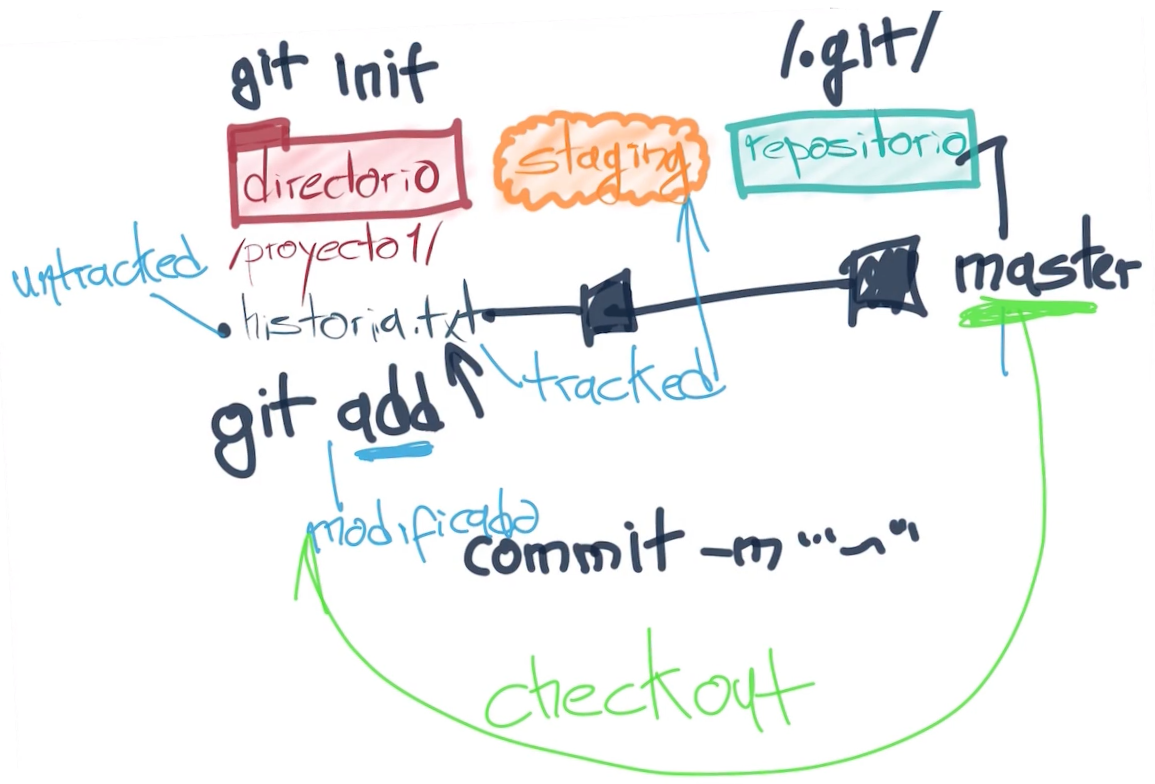 git init
/.git/
directorio
staging
repositorio
/proyecto1/
untracked
master
historia.txt
tracked
git add
modificado
commit -m "
checkout